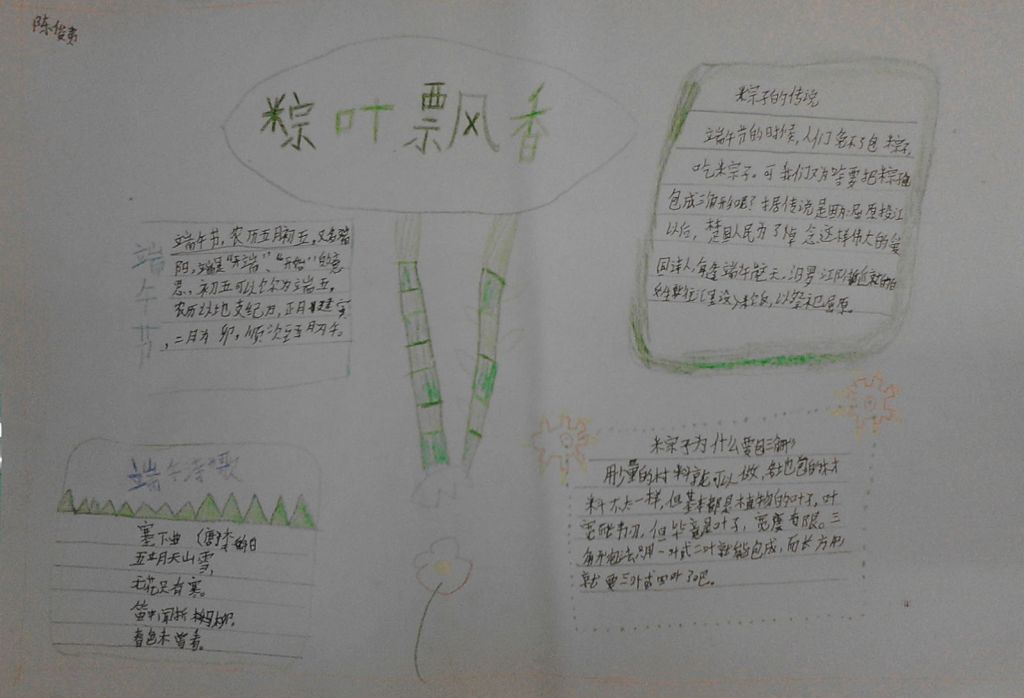 陈俊
粽叶飘香
端午节
端午节,农历五月初五,又名端
阳,端是"开端"、"开始"的意
思,初五可以称为端五。
农历以地支纪月,正月建寅
,二月为卯,顺次至五月为午。
粽子的传说
端午节的时候,人们免不了包粽子,
吃粽子。可我们又为啥要把粽子
包成三角形的呢?据传说是屈原投江
以后,楚国人民为了悼念这样伟大的爱
国诗人,每逢端午这天,汨罗江附近
以祭祀屈原。
端午诗歌
塞下曲(唐)李白
五月天山雪,
无花只有寒。
笛中闻折柳,
春色未曾看。
粽子为什么要包三角
用少量的材料就可以做,各地包的材
料不太一样,但基本都是植物的叶子,叶
宽 ,但毕竟是叶子,宽度有限。三
角形包法只用一叶或二叶就能包成,而长方形
就要三叶或四叶了吧。